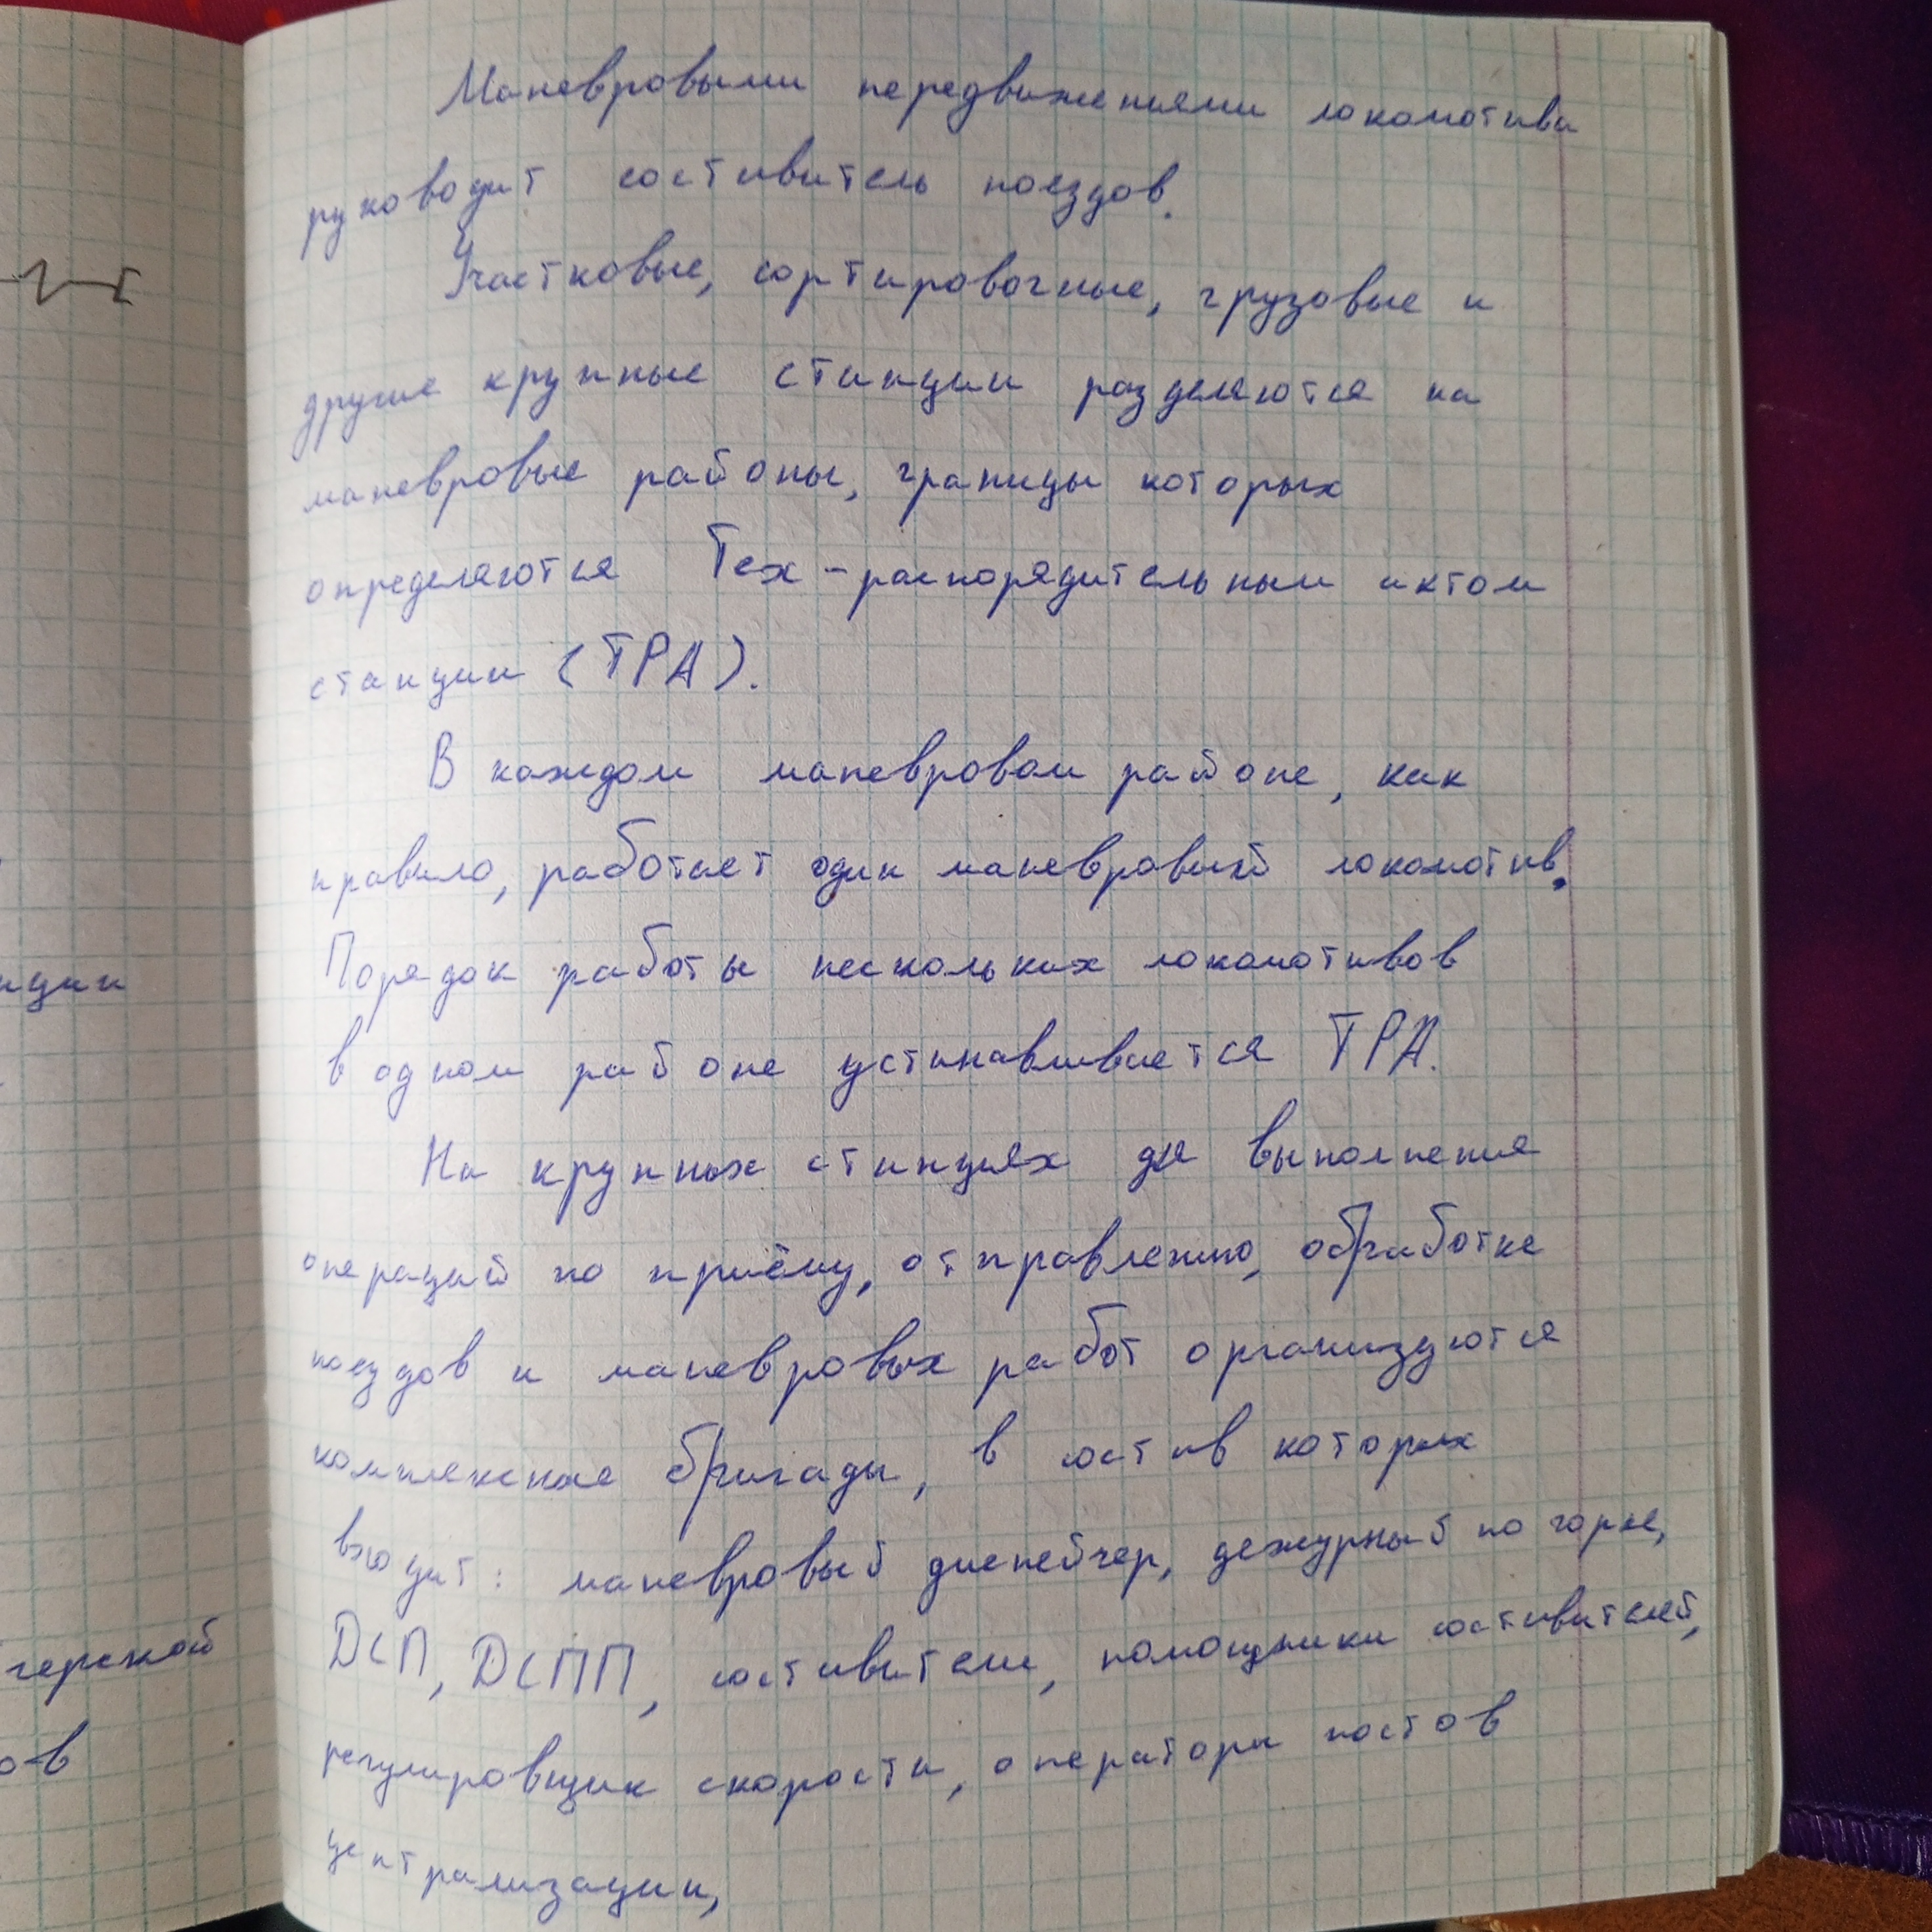 Маневровыми передвижениями локомотива
руководит составитель поездов.
Участковые, сортировочные, грузовые и
другие крупные станции разделяются на
маневровые районы, границы которых
определяются Тех-распорядительным актом
станции (ТРА).
В каждом маневровом районе, как
правило, работает один маневровый локомотив.
Порядок работы нескольких локомотивов
в одном районе устанавливается ТРА.
На крупных станциях для выполнения
операций по приёму, отправлению, обработке
поездов и маневровых работ организуются
комплексные бригады, в состав которых
входит: маневровый диспетчер, дежурный по горке,
ДСП, ДСПП, составители, помощники составителей,
регулировщик скорости, оператори постов
централизации,
нции
черской
ов